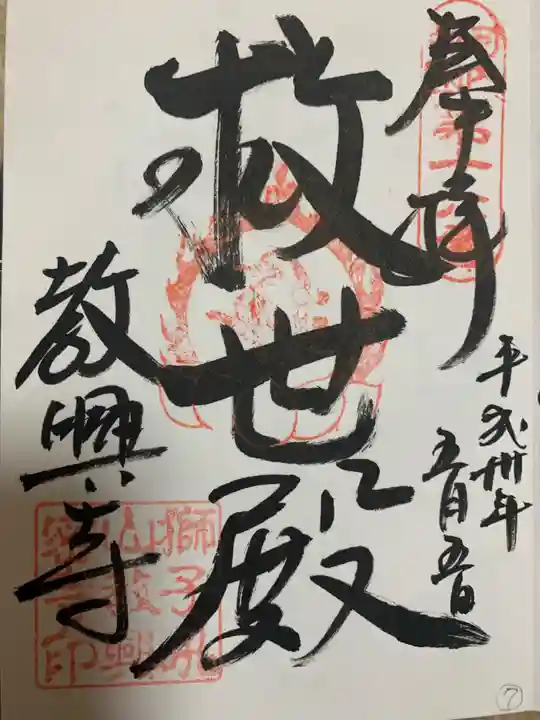 奉拝
平成卅年
五月五日
救世殿
教興寺
獅子吼
山教興
寺之印
⑦